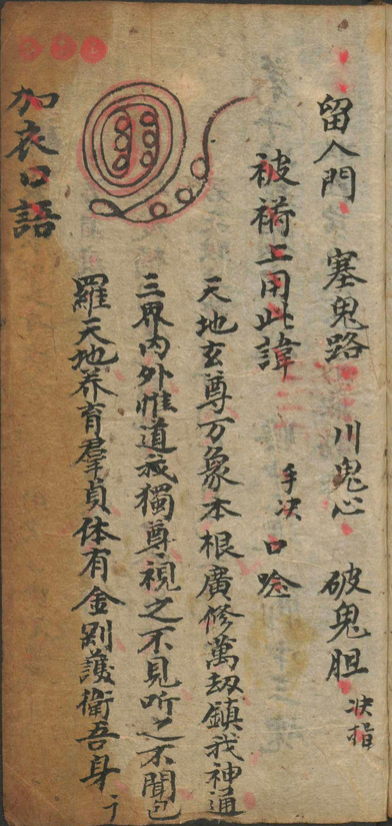 留人門 塞鬼路 川鬼心 破鬼胆 决指
被褙上用此諱 手决 口唸
天地玄尊万象本根廣修萬刼鎮我神通
三界内外惟道祇獨尊視之不見听之不聞包
羅天地养育羣貞体有金剛護衛吾身了
加衣口語